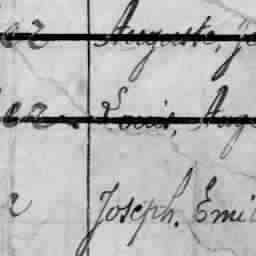 er Auguste, je
er Louis, Aug
r Joseph, Emil